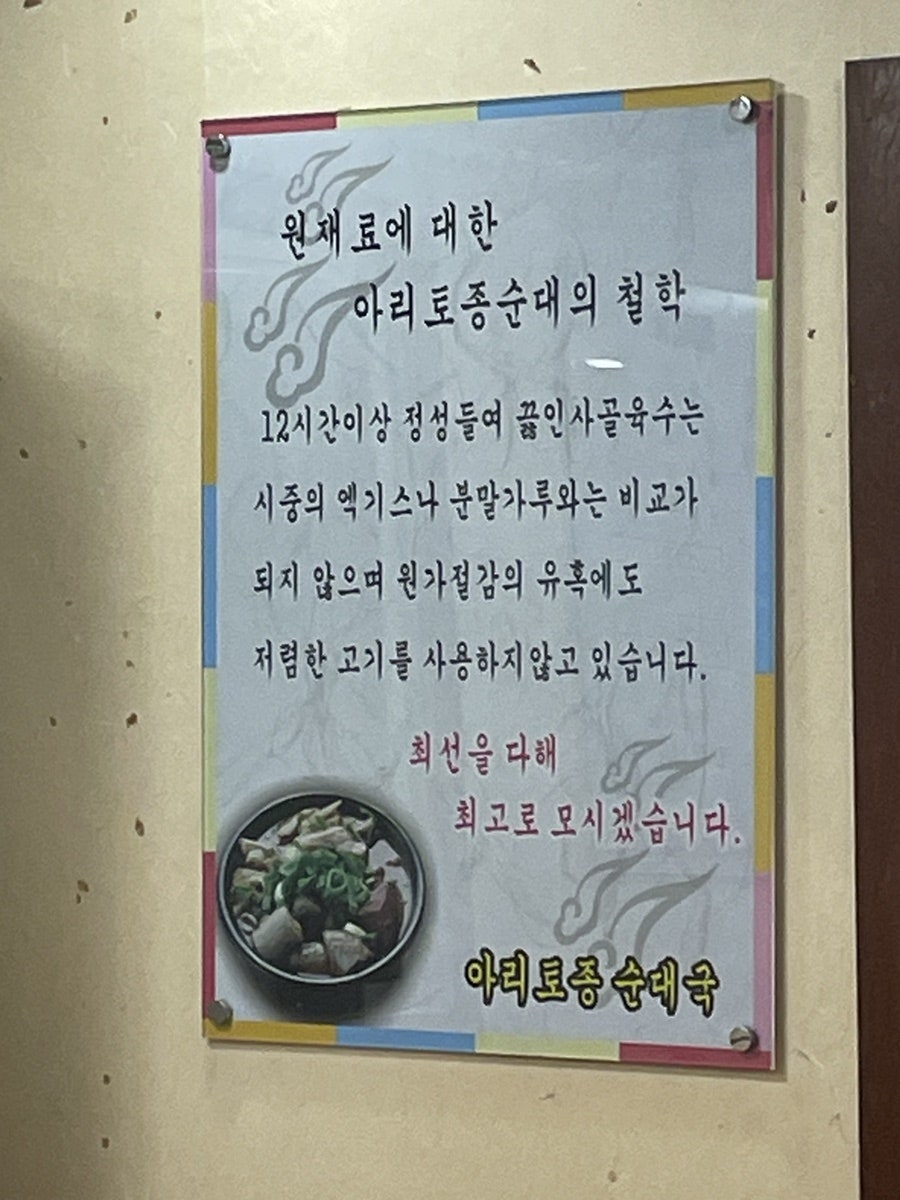 원재료에 대한
아리토종순대의 철학
12시간이상 정성들여 끓인사골육수는
시중의 엑기스나 분말가루와는 비교가
되지 않으며 원가절감의 유혹에도
저렴한 고기를 사용하지않고 있습니다.
최선을 다해
최고로 모시겠습니다.
아리토종 순대국